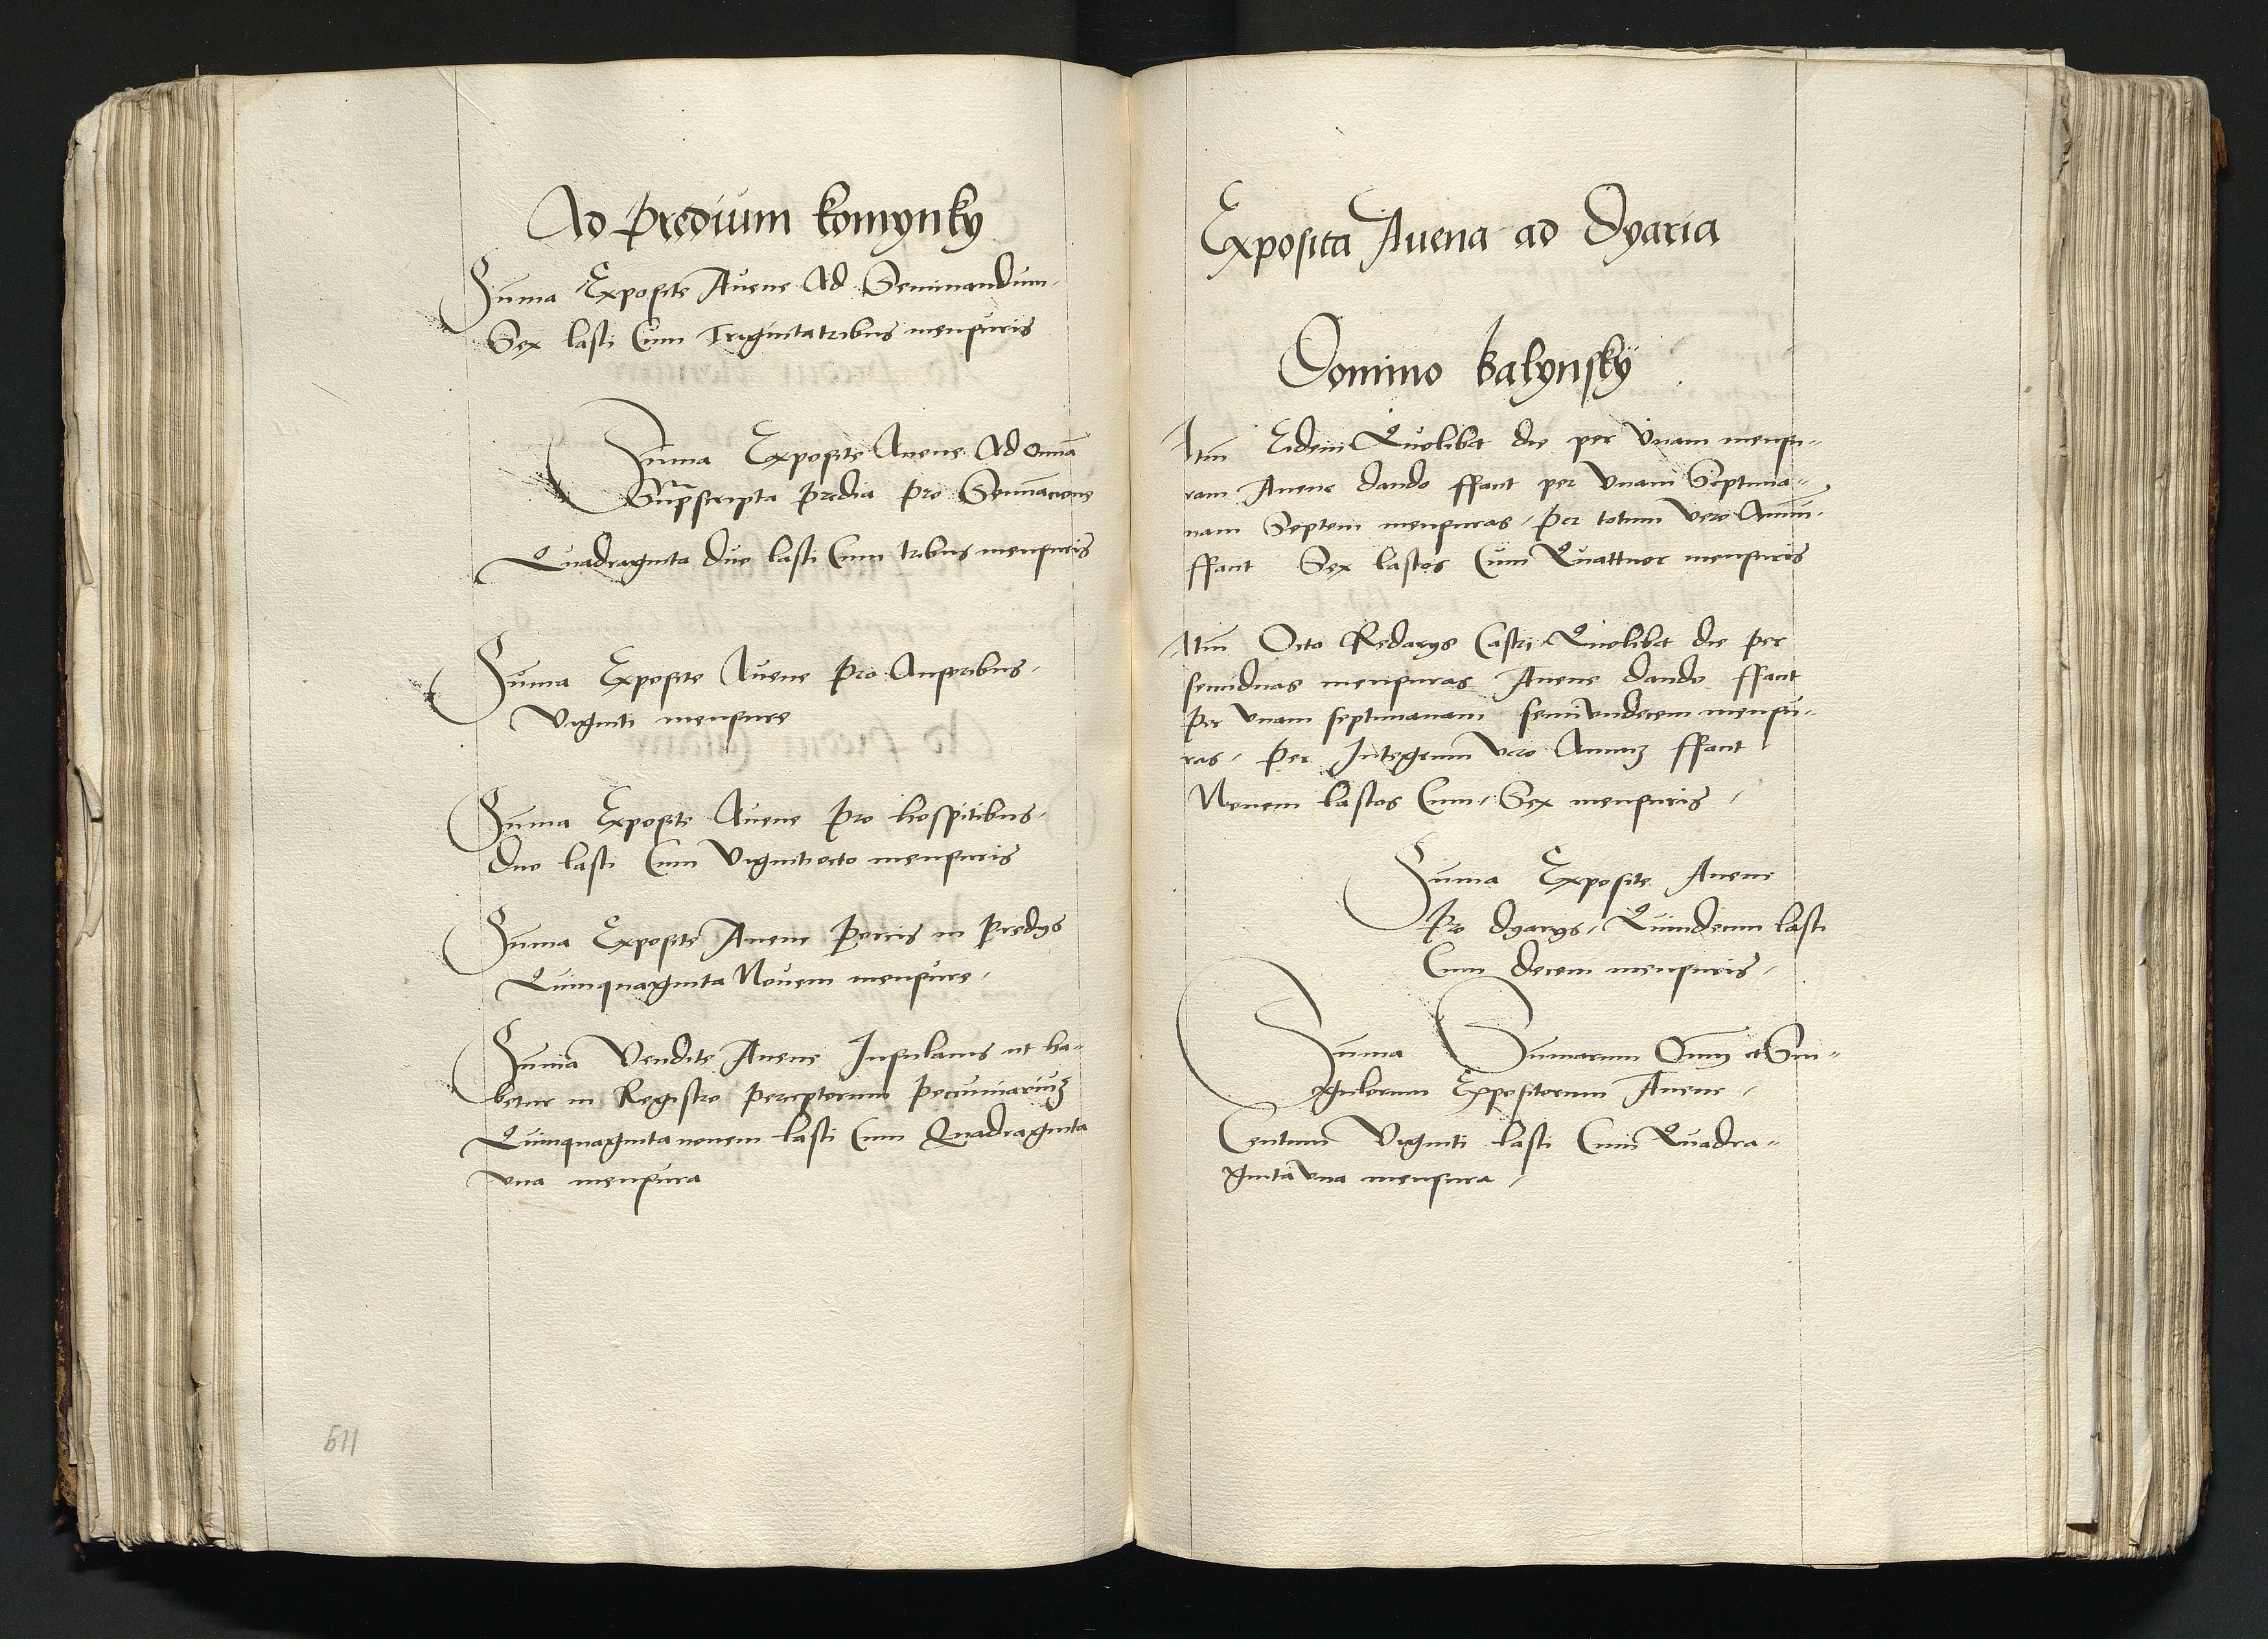 Ad predium komynky
Suma Exposite Auene Ad Seminandum
Sex lasti Cum Trigintatribus mensuris
Suma Exposite Auene Ad omnia
Suprascripta predia pro Seminacione
Quadraginta duo lasti Cum tribus mensuris
Suma Exposite Auene pro Anseribus
Viginti mensure
Suma Exposite Auene pro hospitibus
duo lasti Cum Vigintiocto mensuris
Suma Exposite Auene Porcis in Predys
Quinquaginta Nouem mensure
Suma Vendite Auene Insulanis ut ha-
betur in Registro perceptorum pecuniariuʒ
Quinquagintanouem lasti Cum Quadraginta
vna mensura
611
Exposita Auena ad Dyaria
Domino balynsky
Itm Eidem Quolibet die per Vnam mensu-
ram Auene dando ffaut per Vnam Septima-
nam Septem mensuras, per totum vero Annu
ffaut Sex lastos Cum Quattuor mensuris
Itm Octo Redarys Castri Quolibet die per
semiduas mensuras Auene dando ffaut
per vnam septimanam semivndecem mensu-
ras, per Integrum vero Annuʒ ffaut
Nouem lastos Cum Sex mensuris
Suma Exposite Auene
Pro dyarys, Quindecim lasti
Cum decem mensuris
Suma Sumarum Omniu et Sin-
gulorum Expositorum Auene
Centum Viginti lasti Cum Quadra-
gintavna mensura